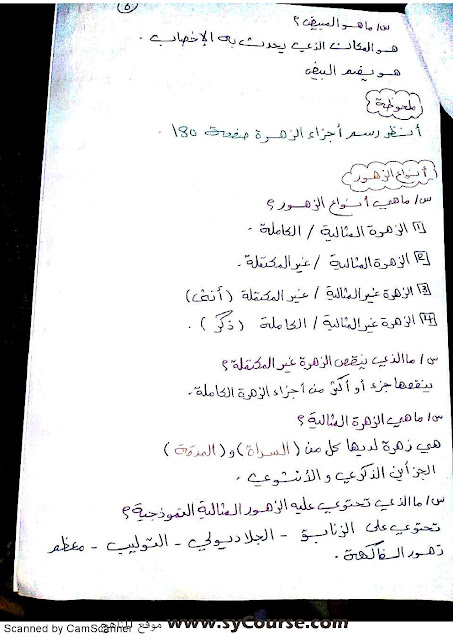 ٥
س/ ما هو المبيض؟
هو المكان الذي يحدث به الإخصاب .
هو يضم البيض
ملحوظة
أنظر رسم أجزاء الزهرة صفحة 180
أنواع الزهور
س/ ما هي أنواع الزهور؟
[1] الزهرة المثالية / الكاملة .
[2] الزهرة المثالية / غير المكتملة .
[3] الزهرة غير المثالية / غير المكتملة (أنثى)
[4] الزهرة غير المثالية / الكاملة (ذكر) .
س/ ما الذي ينقص الزهرة غير المكتملة؟
ينقصها جزء أو أكثر من أجزاء الزهرة الكاملة .
س/ ما هي الزهرة المثالية؟
هي زهرة لديها كل من (السداة) و (المدقة)
الجزأين الذكري و الأنثوي .
س/ ما الذي تحتوي عليه الزهور المثالية النموذجية؟
تحتوي على الزنابق - الجلاديولي - التوليب - معظم
زهور الفاكهة .
موقع المناهج www.syCourse.com
Scanned by CamScanner